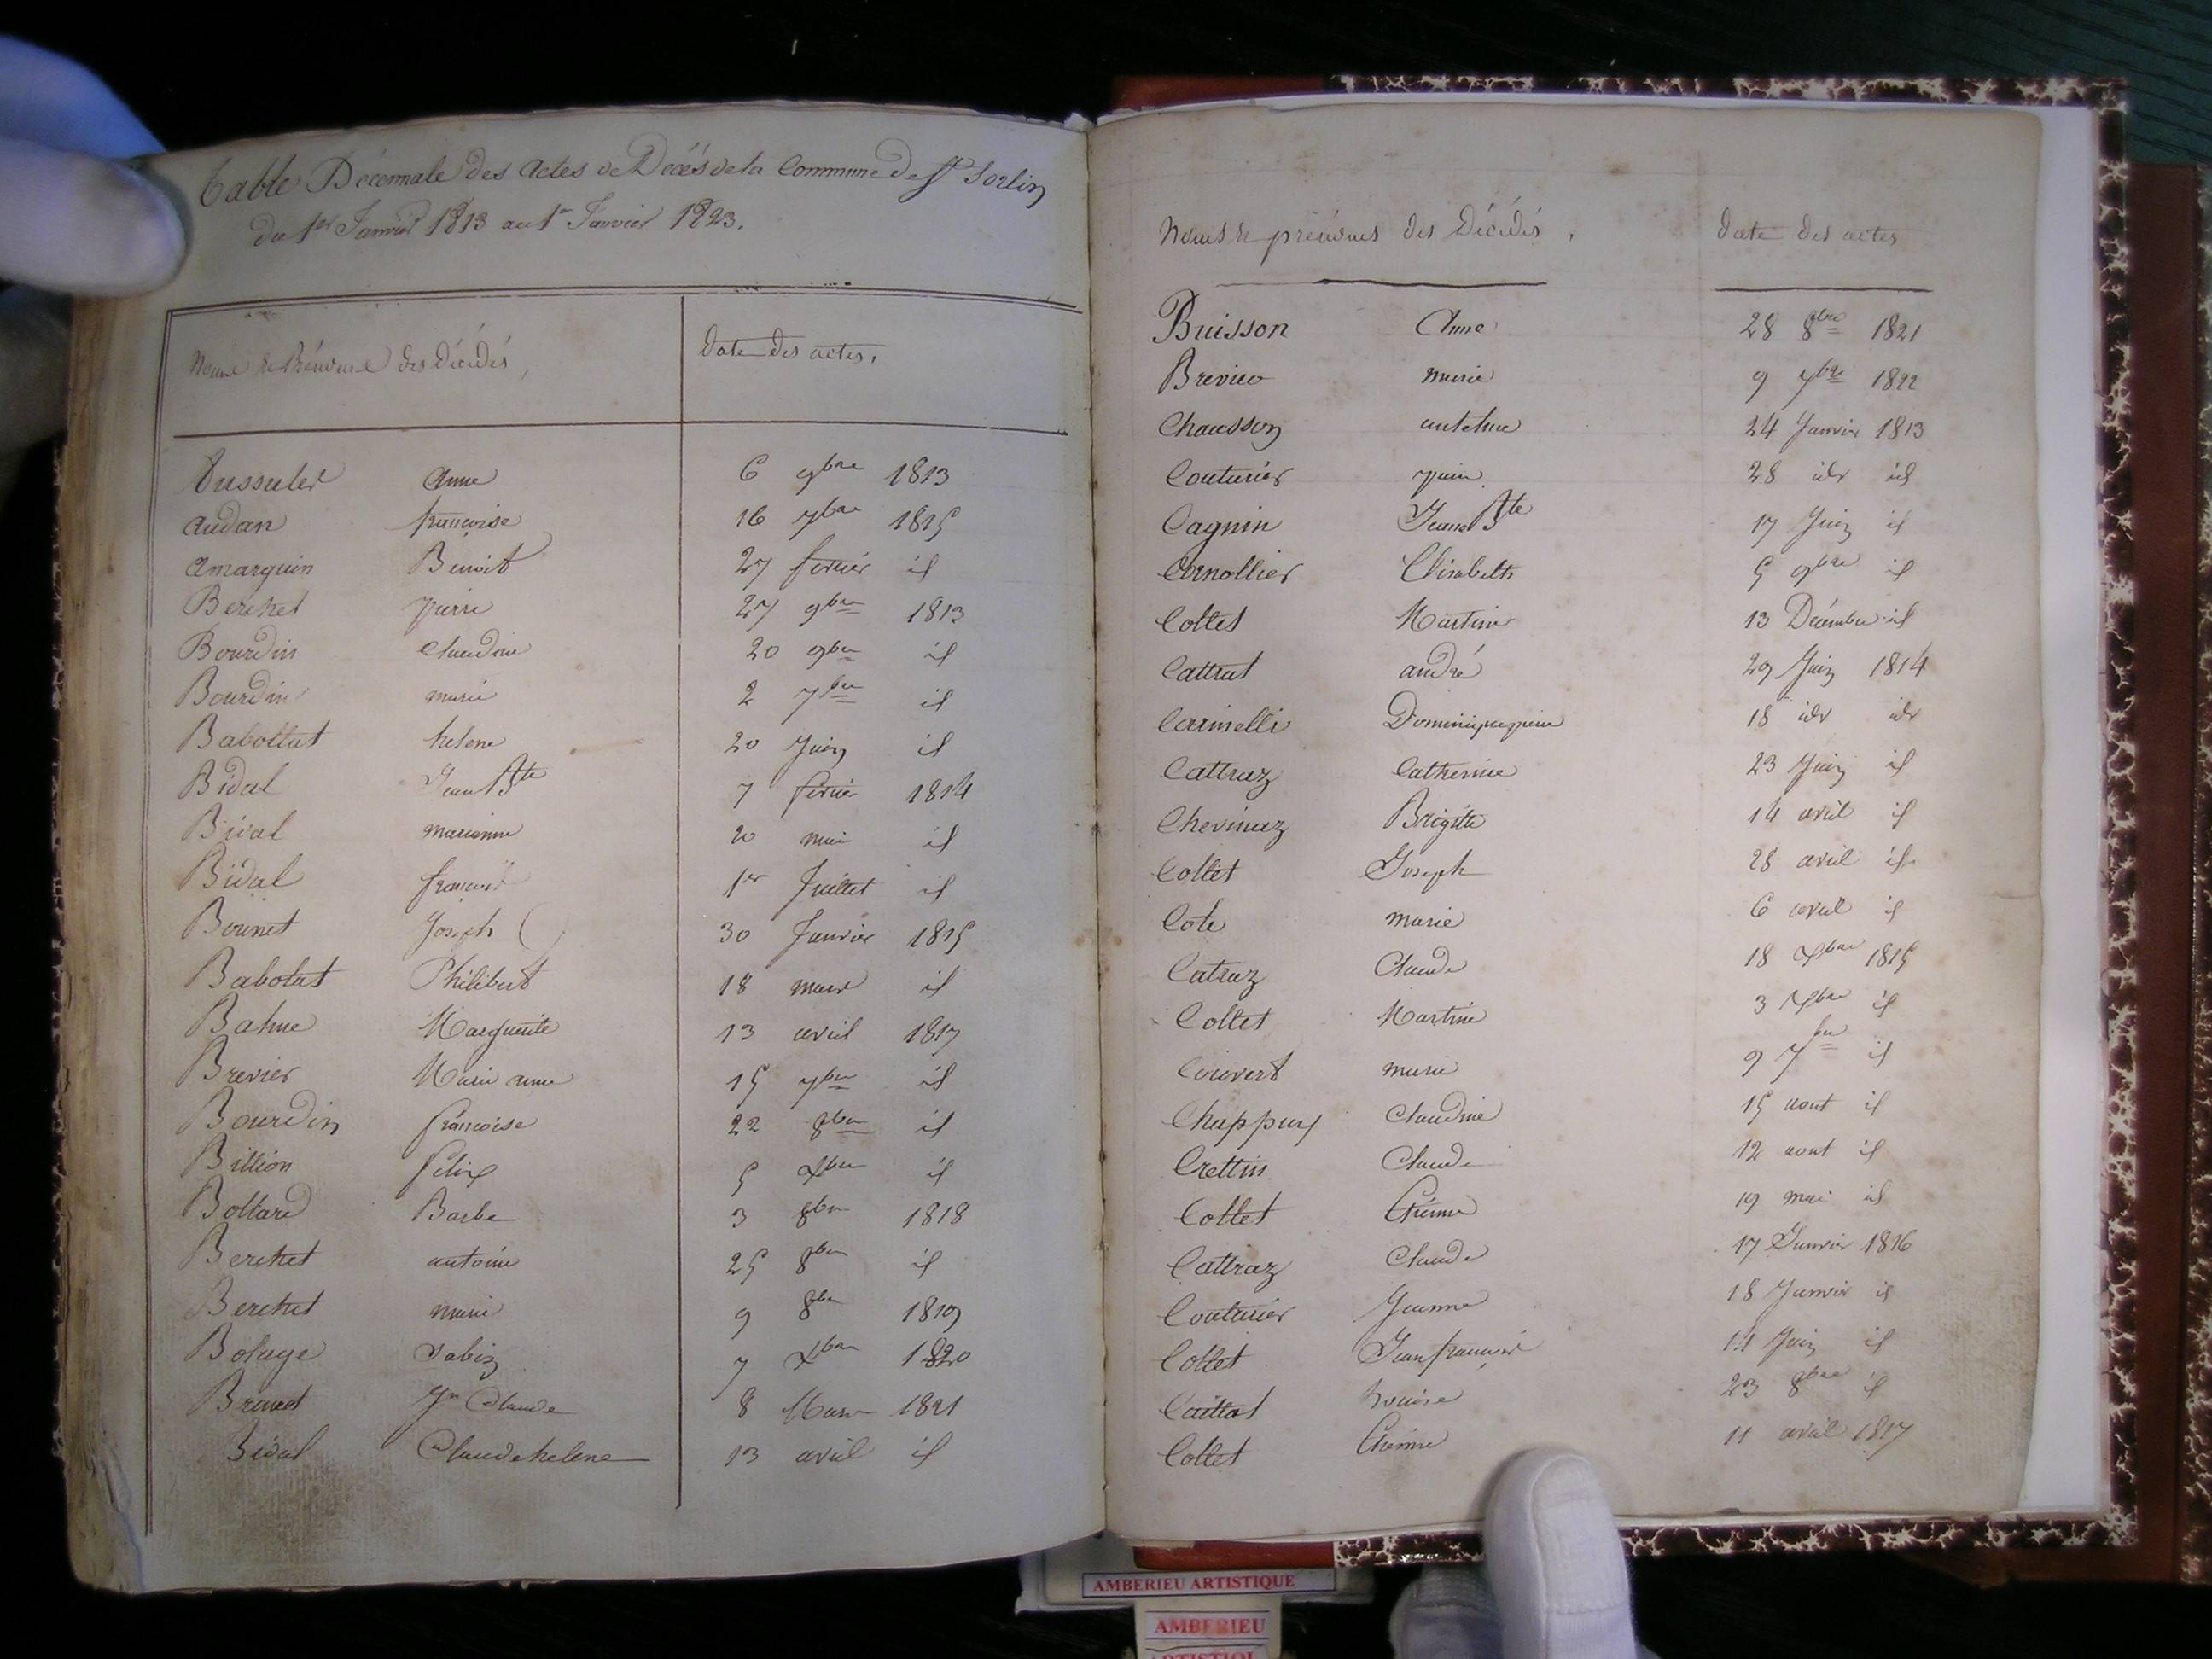 Table Décennale des actes de Décés de la Commune de St Sorlin
du 1er Janvier 1813 au 1er Janvier 1823.
Noms et Prénoms des Décédés,
Date des actes.
Anne 6 9bre 1813
Audan françoise 16 7bre 1815
Amarguin Benoit 27 fevrier id
Berchet pierre 27 9bre 1813
Bourdin Claudine 20 9bre id
Bourdin marie 2 7bre id
Babollat helene 20 Juin id
Bidal Jean Bte 7 fevrier 1814
Bidal marianne 20 mai id
Bidal françois 1er Juillet id
Bonnet Joseph 30 Janvier 1815
Babolat Philibert 18 mars id
Bahue Marguerite 13 avril 1817
Brevier Marie anne 15 7bre id
Bourdin françoise 22 8bre id
Billion felix 5 Xbre id
Bottard Barbe 3 8bre 1818
Berchet antoine 25 8bre id
Berchet marie 9 8bre 1819
Bolage Sabin 7 Xbre 1820
Jn Claude 8 Mars 1821
Bidal Claude helene 13 avril id
Noms et prénoms des Décédés,
Date des actes
Buisson Anne 28 8bre 1821
marie 9 7bre 1822
Chausson 24 Janvier 1813
Couturier pierre 28 idr id
Cagnin Jean Bte 17 Juin id
Cornollier Elisabeth 5 9bre id
Collet Martine 13 Décembre id
Cattrat andré 29 Juin 1814
Carinelli Dominique pierre 18 idr idr
Cattraz Catherine 23 Juin id
Chevinaz Brigitte 14 avril id
Collet Joseph 28 avril id
Cote marie 6 avril id
Catraz Claude 18 Xbre 1815
Collet Martine 3 Xbre id
Couvert marie 9 7bre id
Chappuy Claudine 15 aout id
Crettin Claude 12 aout id
Collet Etienne 19 mai id
Cattraz Claude 17 Janvier 1816
Couturier Jeanne 18 Janvier id
Collet Jean françois 14 Juin id
Caillat Louise 23 8bre id
Collet Etienne 11 avril 1817
AMBERIEU ARTISTIQUE
AMBERIEU
ARTISTIQUE